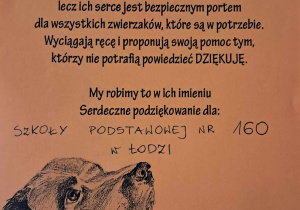 lecz ich serce jest bezpiecznym portem
dla wszystkich zwierzaków, które są w potrzebie.
Wyciągają ręcę i proponują swoją pomoc tym,
którzy nie potrafią powiedzieć DZIĘKUJĘ.
My robimy to w ich imieniu
Serdeczne podziękowanie dla:
SZKOŁY PODSTAWOWEJ NR 160
W ŁODZI